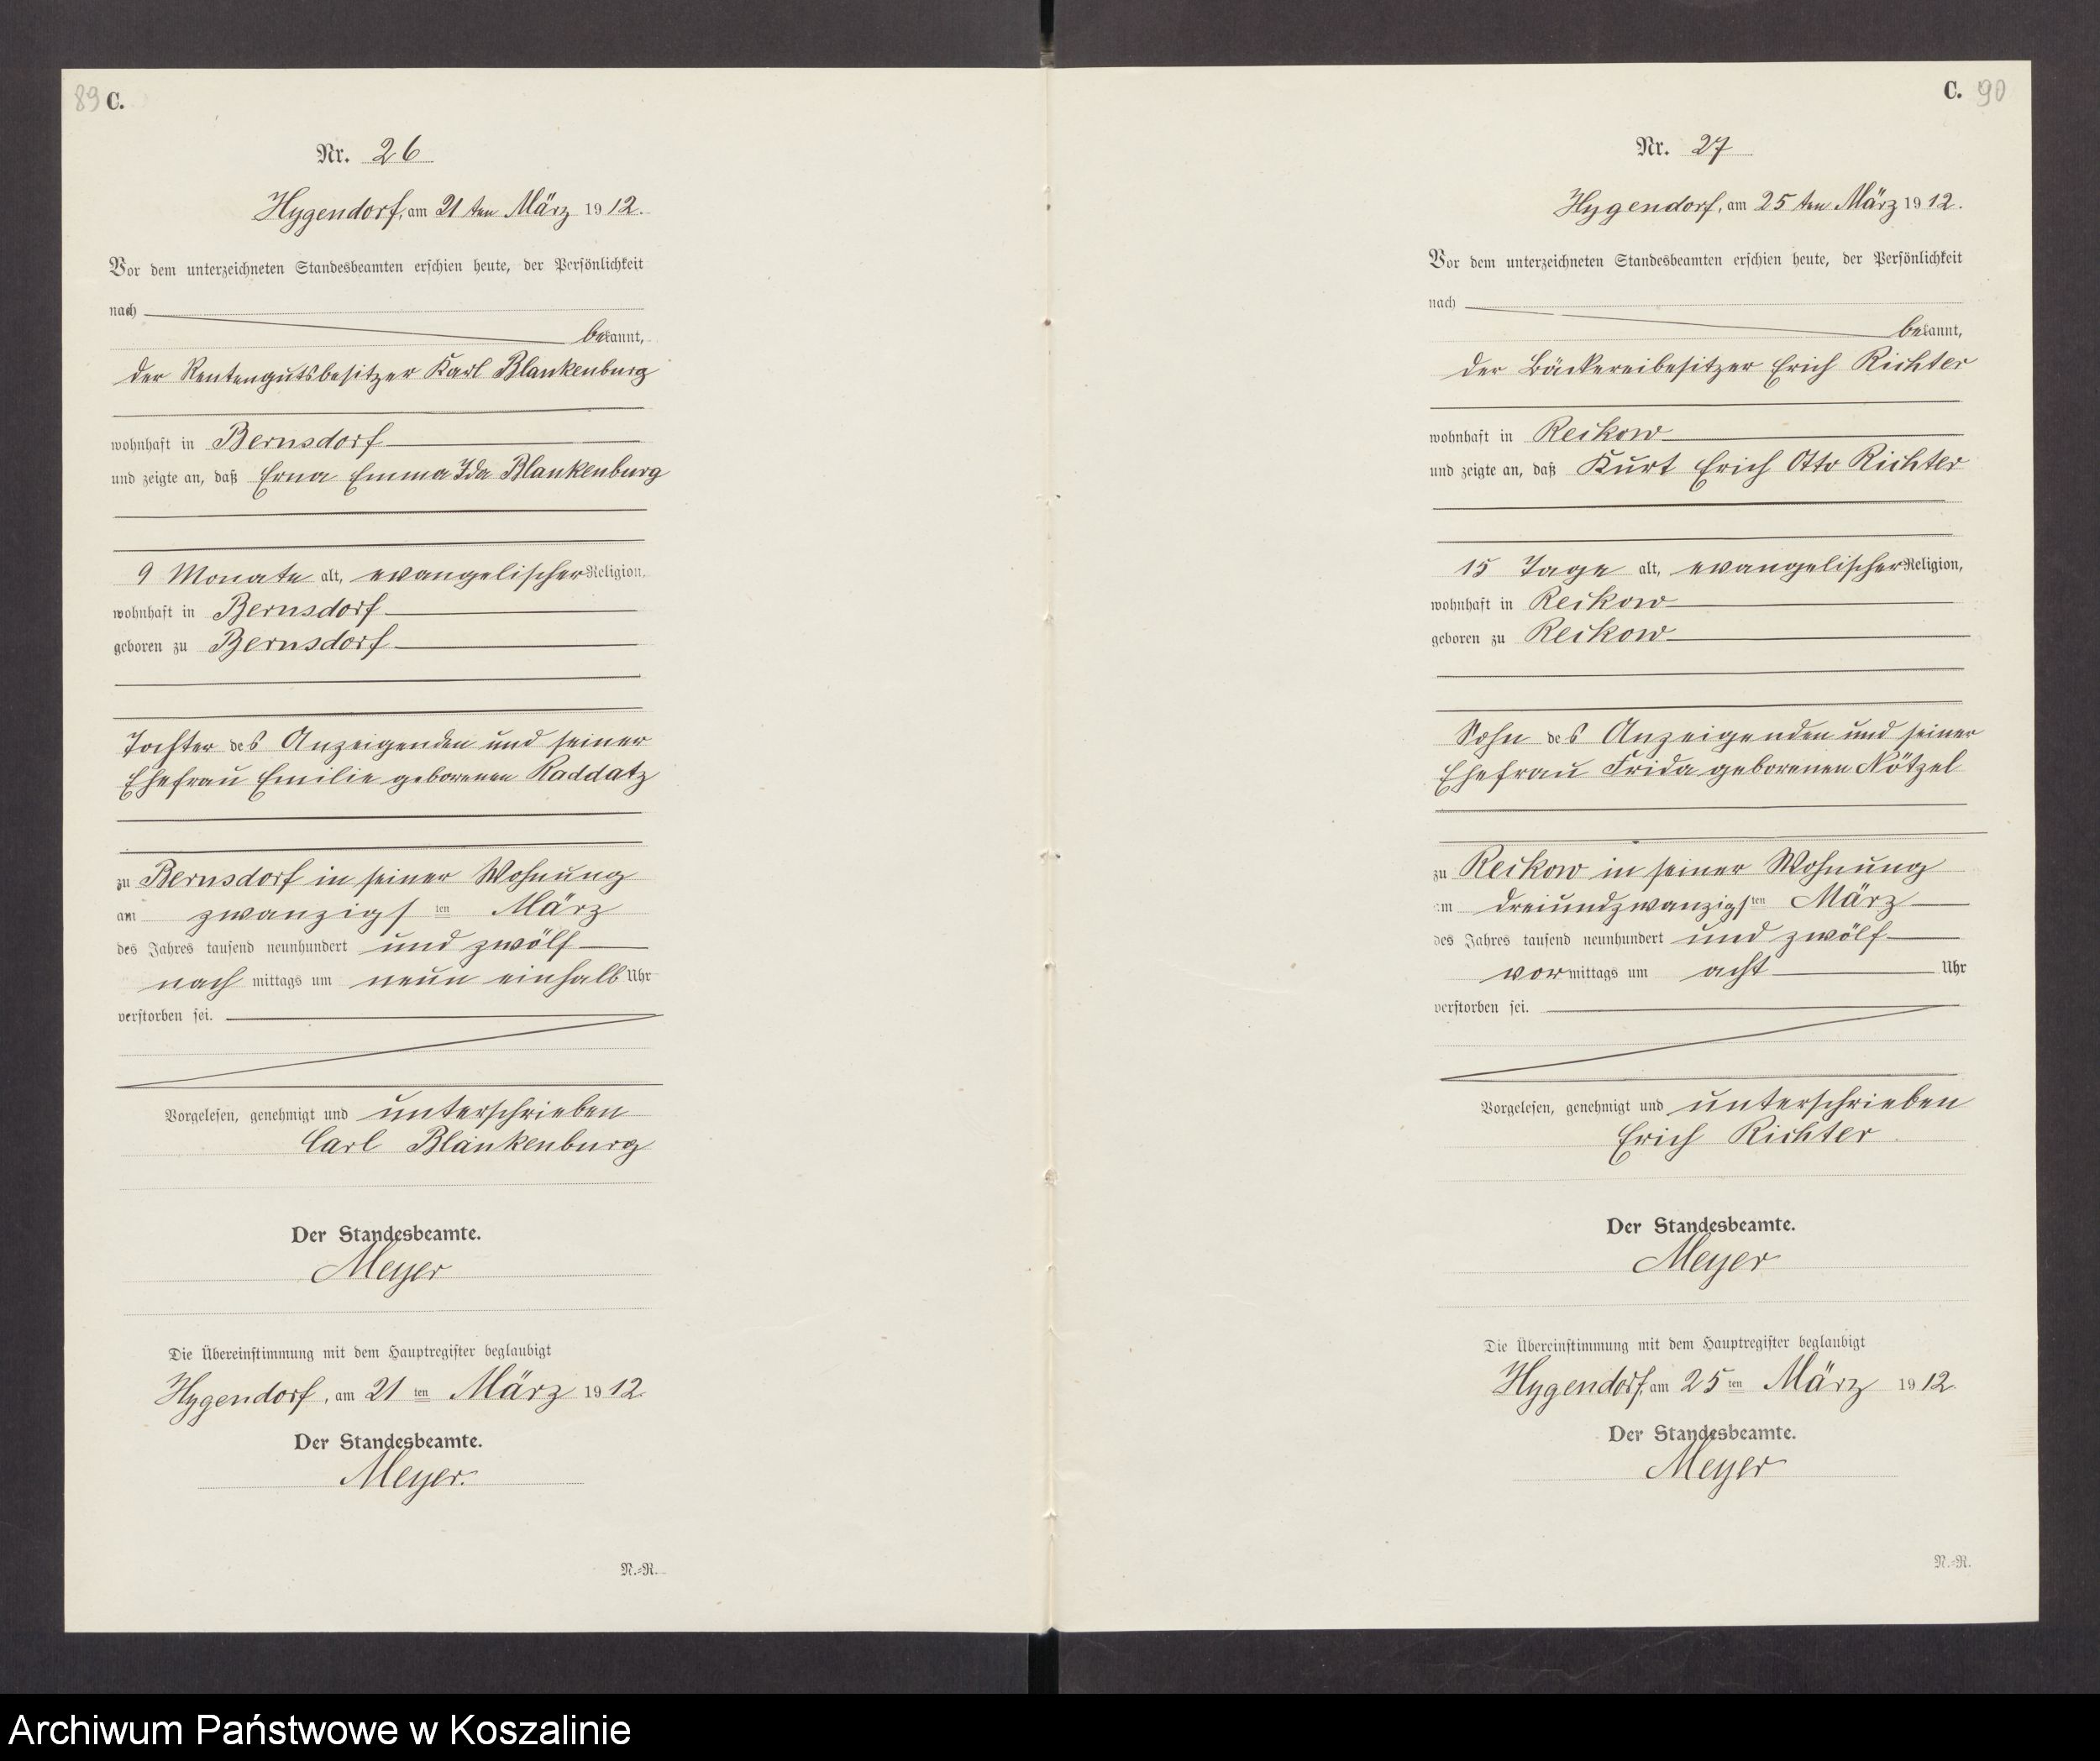 89 C.
Nr. 26
Hygendorf, am 21ten März 1912.
Vor dem unterzeichneten Standesbeamten erschien heute, der Persönlichkeit
nach
bekannt,
der Rentengutsbesitzer Karl Blankenburg
wohnhaft in Bernsdorf
und zeigte an, daß Erna Emma Ida Blankenburg
9 Monate alt, evangelischer Religion,
wohnhaft in Bernsdorf
geboren zu Bernsdorf
Tochter des Anzeigenden und seiner
Ehefrau Emilie geborenen Raddatz
zu Bernsdorf in seiner Wohnung
am zwanzigsten März
des Jahres tausend neunhundert und zwölf
nachmittags um neun einhalb Uhr
verstorben sei.
Vorgelesen, genehmigt und unterschrieben
Carl Blankenburg
Der Standesbeamte.
Meyer
Die Übereinstimmung mit dem Hauptregister beglaubigt
Hygendorf, am 21ten März 1912.
Der Standesbeamte.
Meyer.
N.=R.
C. 90
Nr. 27
Hygendorf, am 25ten März 1912.
Vor dem unterzeichneten Standesbeamten erschien heute, der Persönlichkeit
nach
bekannt,
der Bäckereibesitzer Erich Richter
wohnhaft in Reikow
und zeigte an, daß Kurt Erich Otto Richter
15 Tage alt, evangelischer Religion,
wohnhaft in Reikow
geboren zu Reikow
Sohn des Anzeigenden und seiner
Ehefrau Frida geborenen Nötzel
zu Reikow in seiner Wohnung
am dreiundzwanzigsten März
des Jahres tausend neunhundert und zwölf
vormittags um acht Uhr
verstorben sei.
Vorgelesen, genehmigt und unterschrieben
Erich Richter
Der Standesbeamte.
Meyer
Die Übereinstimmung mit dem Hauptregister beglaubigt
Hygendorf, am 25ten März 1912.
Der Standesbeamte.
Meyer
N.=R.
Archiwum Państwowe w Koszalinie